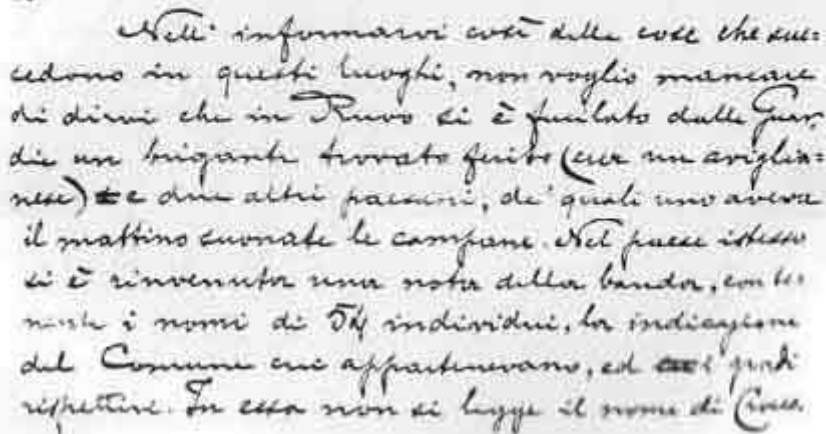 Nell' informarvi così delle cose che suc=
cedono in questi luoghi, non voglio mancare
di dirvi che in Ruvo si è fucilato dalle Guar
die un brigante trovato ferito (era un aviglia=
nese) e due altri paesani, de' quali uno aveva
il mattino suonate le campane. Nel paese istesso
si è rinvenuta una nota della banda, conte
nente i nomi di 54 individui, la indicazione
del Comune cui appartenevano, ed i gradi
rispettivi. In essa non si legge il nome di Crocco